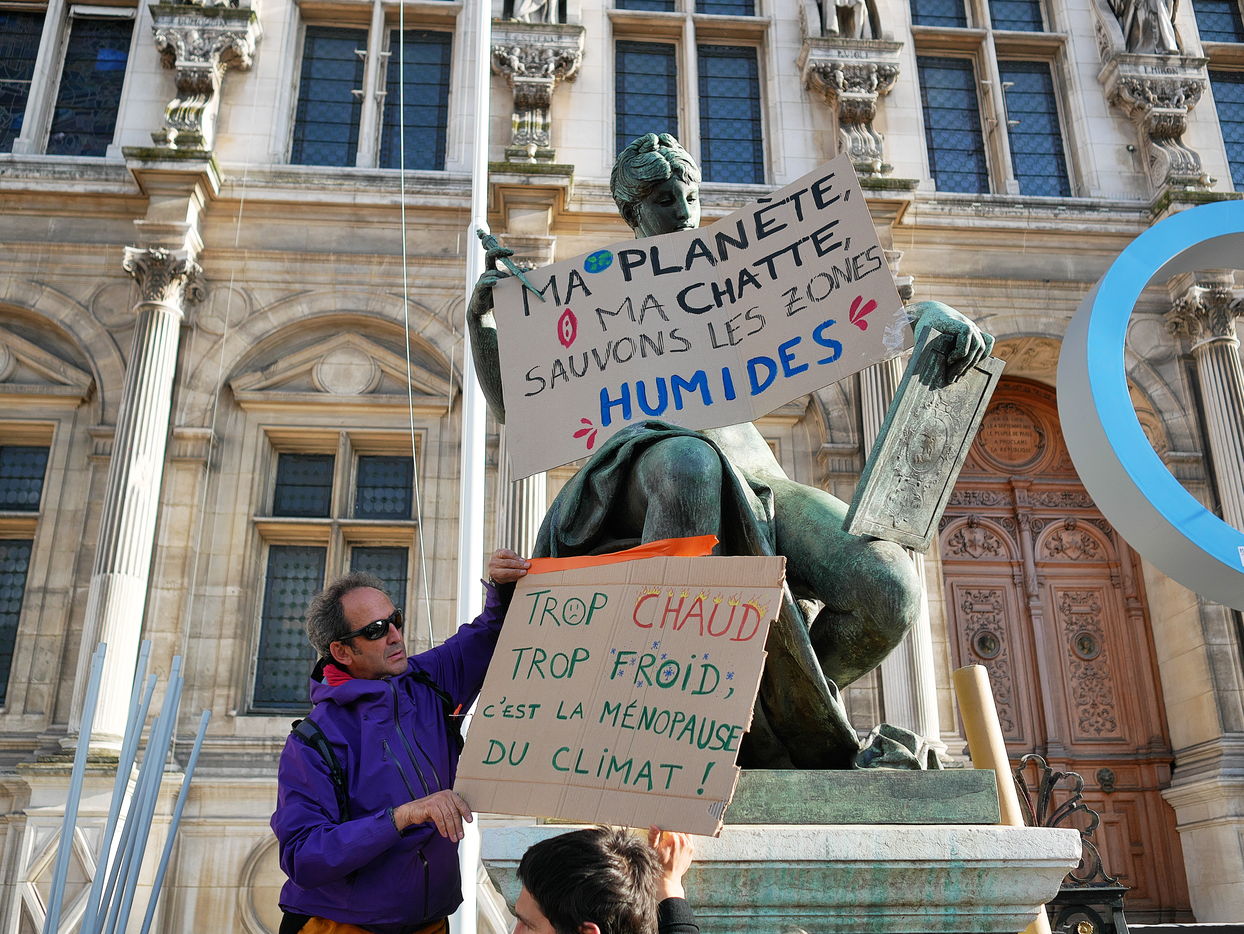 MA PLANÈTE,
MA CHATTE,
SAUVONS LES ZONES
HUMIDES
TROP CHAUD
TROP FROID,
C'EST LA MÉNOPAUSE
DU CLIMAT !